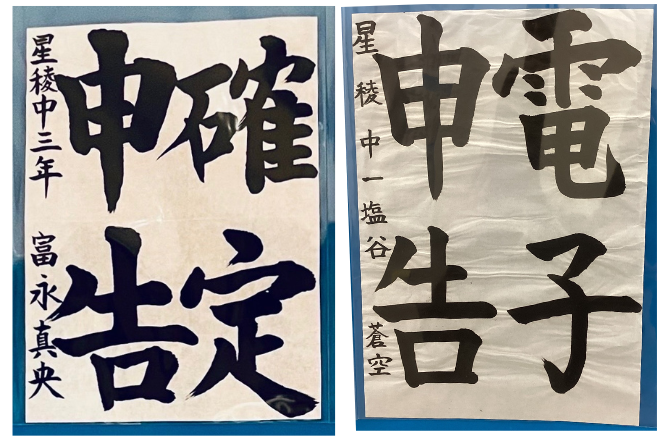 確定
申告
星稜中三年 富永真央
電子
申告
星稜中一 塩谷 蒼空